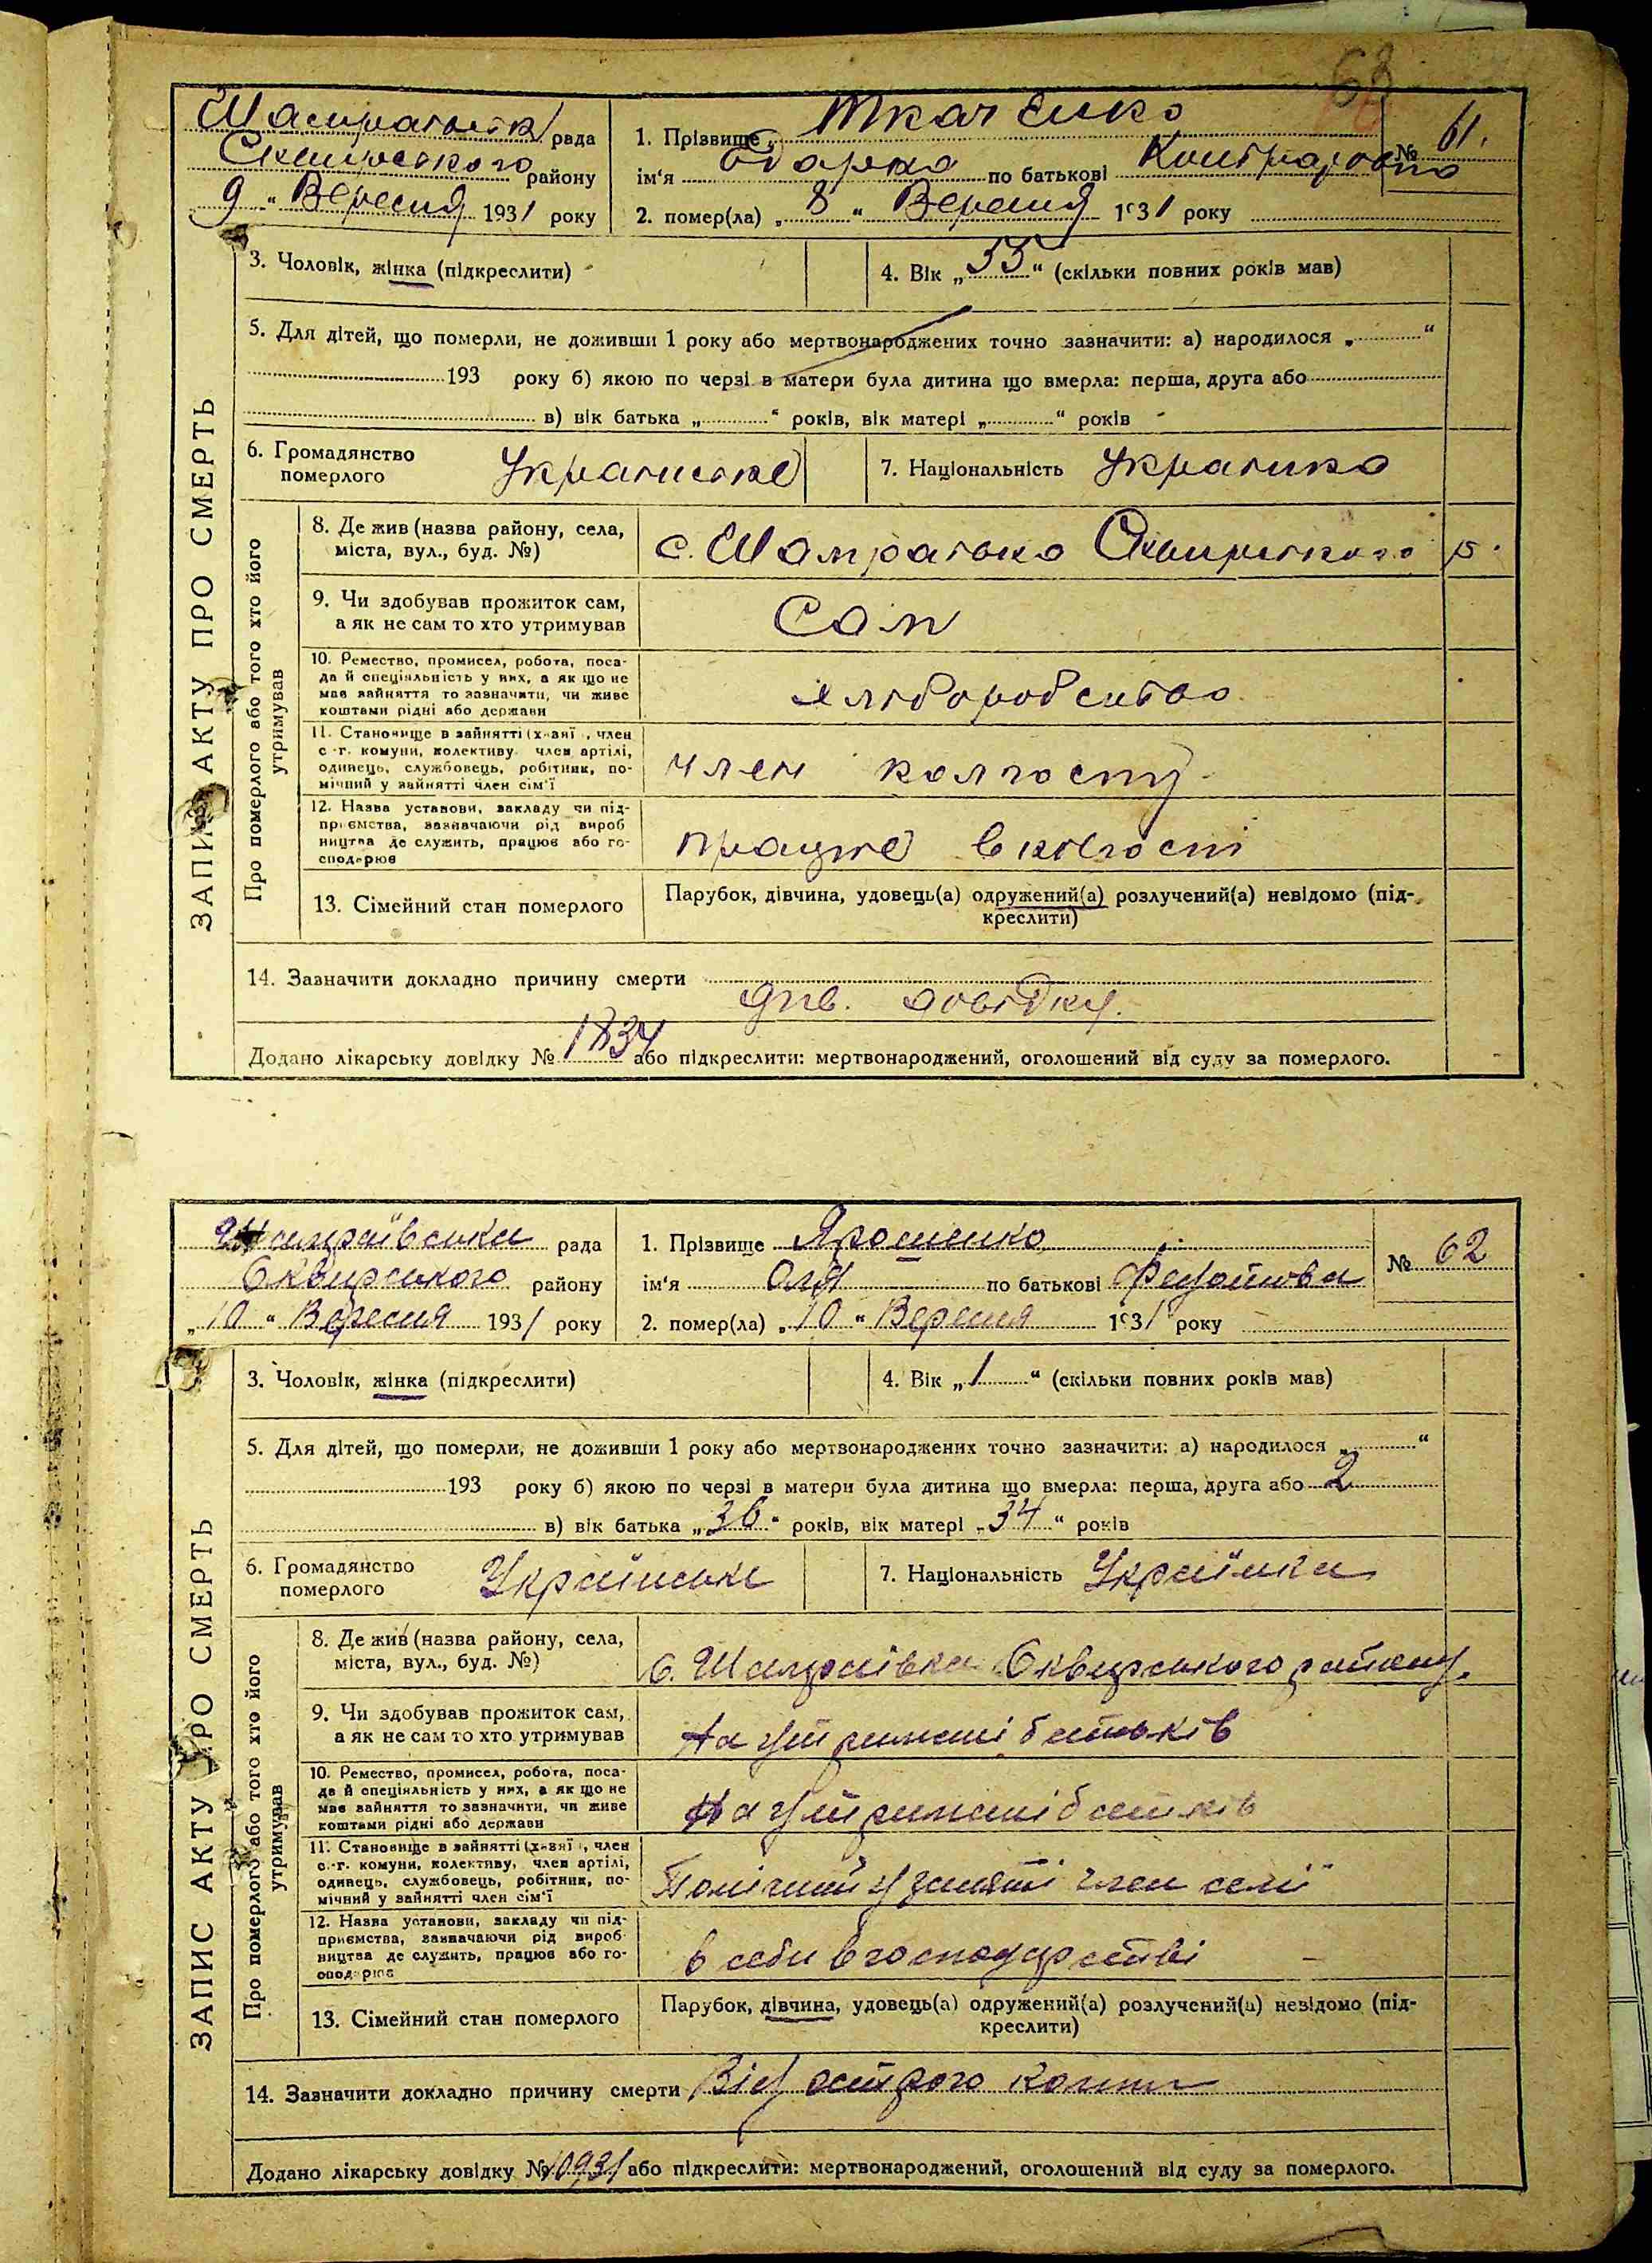 68
Шамраївськ рада
Сквирського району
9 " Вересня 1931 року
1. Прізвище Ткаченко
№ 61.
ім'я Одарка по батькові Кондратовна
2. помер(ла) „ 8 " Вересня 1931 року
ЗАПИС АКТУ ПРО СМЕРТЬ
3. Чоловік, жінка (підкреслити)
4. Вік „ 55 " (скільки повних років мав)
5. Для дітей, що померли, не доживши 1 року або мертвонароджених точно зазначити: а) народилося „ "
193 року б) якою по черзі в матери була дитина що вмерла: перша, друга або
в) вік батька „ " років, вік матері „ " років
6. Громадянство
померлого
Українське
7. Національність Українка
Про померлого або того хто його
утримував
8. Де жив (назва району, села,
міста, вул., буд. №)
с. Шамраївка Сквирського р.
9. Чи здобував прожиток сам,
а як не сам то хто утримував
Сам
10. Ремество, промисел, робота, поса-
да й спеціяльність у них, а як що не
має зайняття то зазначити, чи живе
коштами рідні або держави
хліборобство
11. Становище в зайнятті (хазяї, член
с.-г. комуни, колективу, член артілі,
одинець, службовець, робітник, по-
мічний у зайнятті член сім'ї
член колгоспу
12. Назва установи, закладу чи під-
приємства, зазначаючи рід вироб
ництва де служить, працює або го-
сподарює
працює в колгоспі
13. Сімейний стан померлого
Парубок, дівчина, удовець(а) одружений(а) розлучений(а) невідомо (під-
креслити)
14. Зазначити докладно причину смерти
див. довідку.
Додано лікарську довідку № 1834 або підкреслити: мертвонароджений, оголошений від суду за померлого.
Шамраївська рада
Сквирського району
„ 10 " Вересня 1931 року
1. Прізвище Ярошенко
№ 62
ім'я Оля по батькові Федотовна
2. помер(ла) „ 10 " Вересня 1931 року
ЗАПИС АКТУ ПРО СМЕРТЬ
3. Чоловік, жінка (підкреслити)
4. Вік „ 1 " (скільки повних років мав)
5. Для дітей, що померли, не доживши 1 року або мертвонароджених точно зазначити: а) народилося „ "
193 року б) якою по черзі в матери була дитина що вмерла: перша, друга або 2
в) вік батька „ 36 " років, вік матері „ 34 " років
6. Громадянство
померлого
Українська
7. Національність Українка
Про померлого або того хто його
утримував
8. Де жив (назва району, села,
міста, вул., буд. №)
С. Шамраївка Сквирського району.
9. Чи здобував прожиток сам,
а як не сам то хто утримував
На утриманні батьків
10. Ремество, промисел, робота, поса-
да й спеціяльність у них, а як що не
має зайняття то зазначити, чи живе
коштами рідні або держави
На утриманні батьків
11. Становище в зайнятті (хазяї, член
с.-г. комуни, колективу, член артілі,
одинець, службовець, робітник, по-
мічний у зайнятті член сім'ї
Помічний у занятті член семї
12. Назва установи, закладу чи під-
приємства, зазначаючи рід вироб
ництва де служить, працює або го-
сподарює
в себе в господарстві
13. Сімейний стан померлого
Парубок, дівчина, удовець(а) одружений(а) розлучений(а) невідомо (під-
креслити)
14. Зазначити докладно причину смерти Від острого
Додано лікарську довідку № 10931 або підкреслити: мертвонароджений, оголошений від суду за померлого.